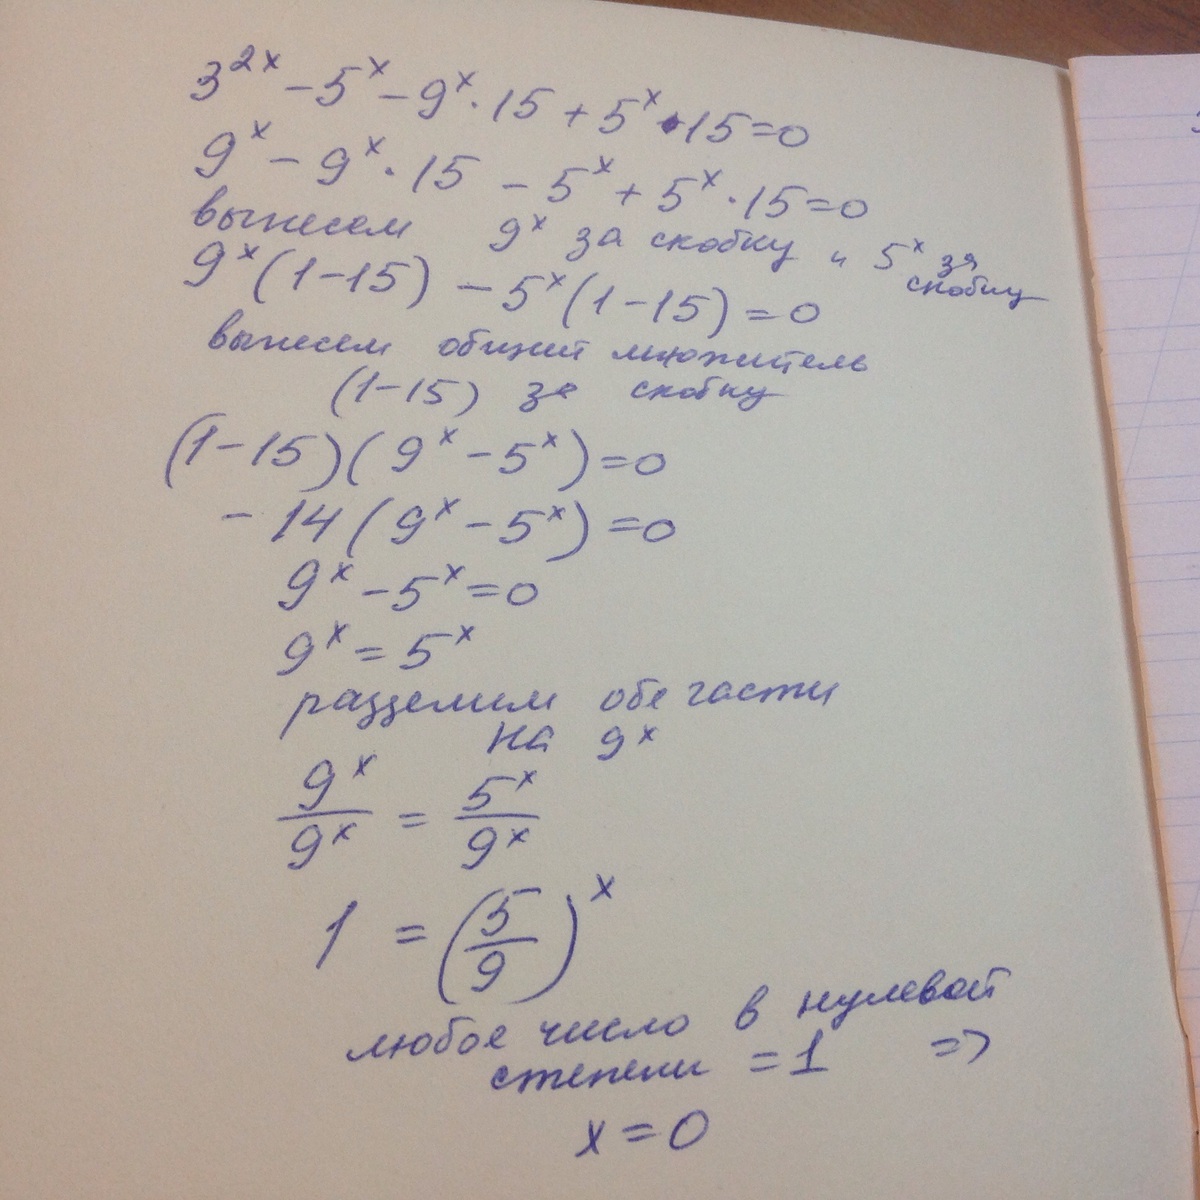 3^{2x} - 5^x - 9^x · 15 + 5^x · 15 = 0
9^x - 9^x · 15 - 5^x + 5^x · 15 = 0
вынесем 9^x за скобку и 5^x за
скобку
9^x (1-15) - 5^x (1-15) = 0
вынесем общий множитель
(1-15) за скобку
(1-15)(9^x - 5^x) = 0
-14 (9^x - 5^x) = 0
9^x - 5^x = 0
9^x = 5^x
разделим обе части
на 9^x
9^x/9^x = 5^x/9^x
1 = (5/9)^x
любое число в нулевой
степени = 1 =>
x = 0